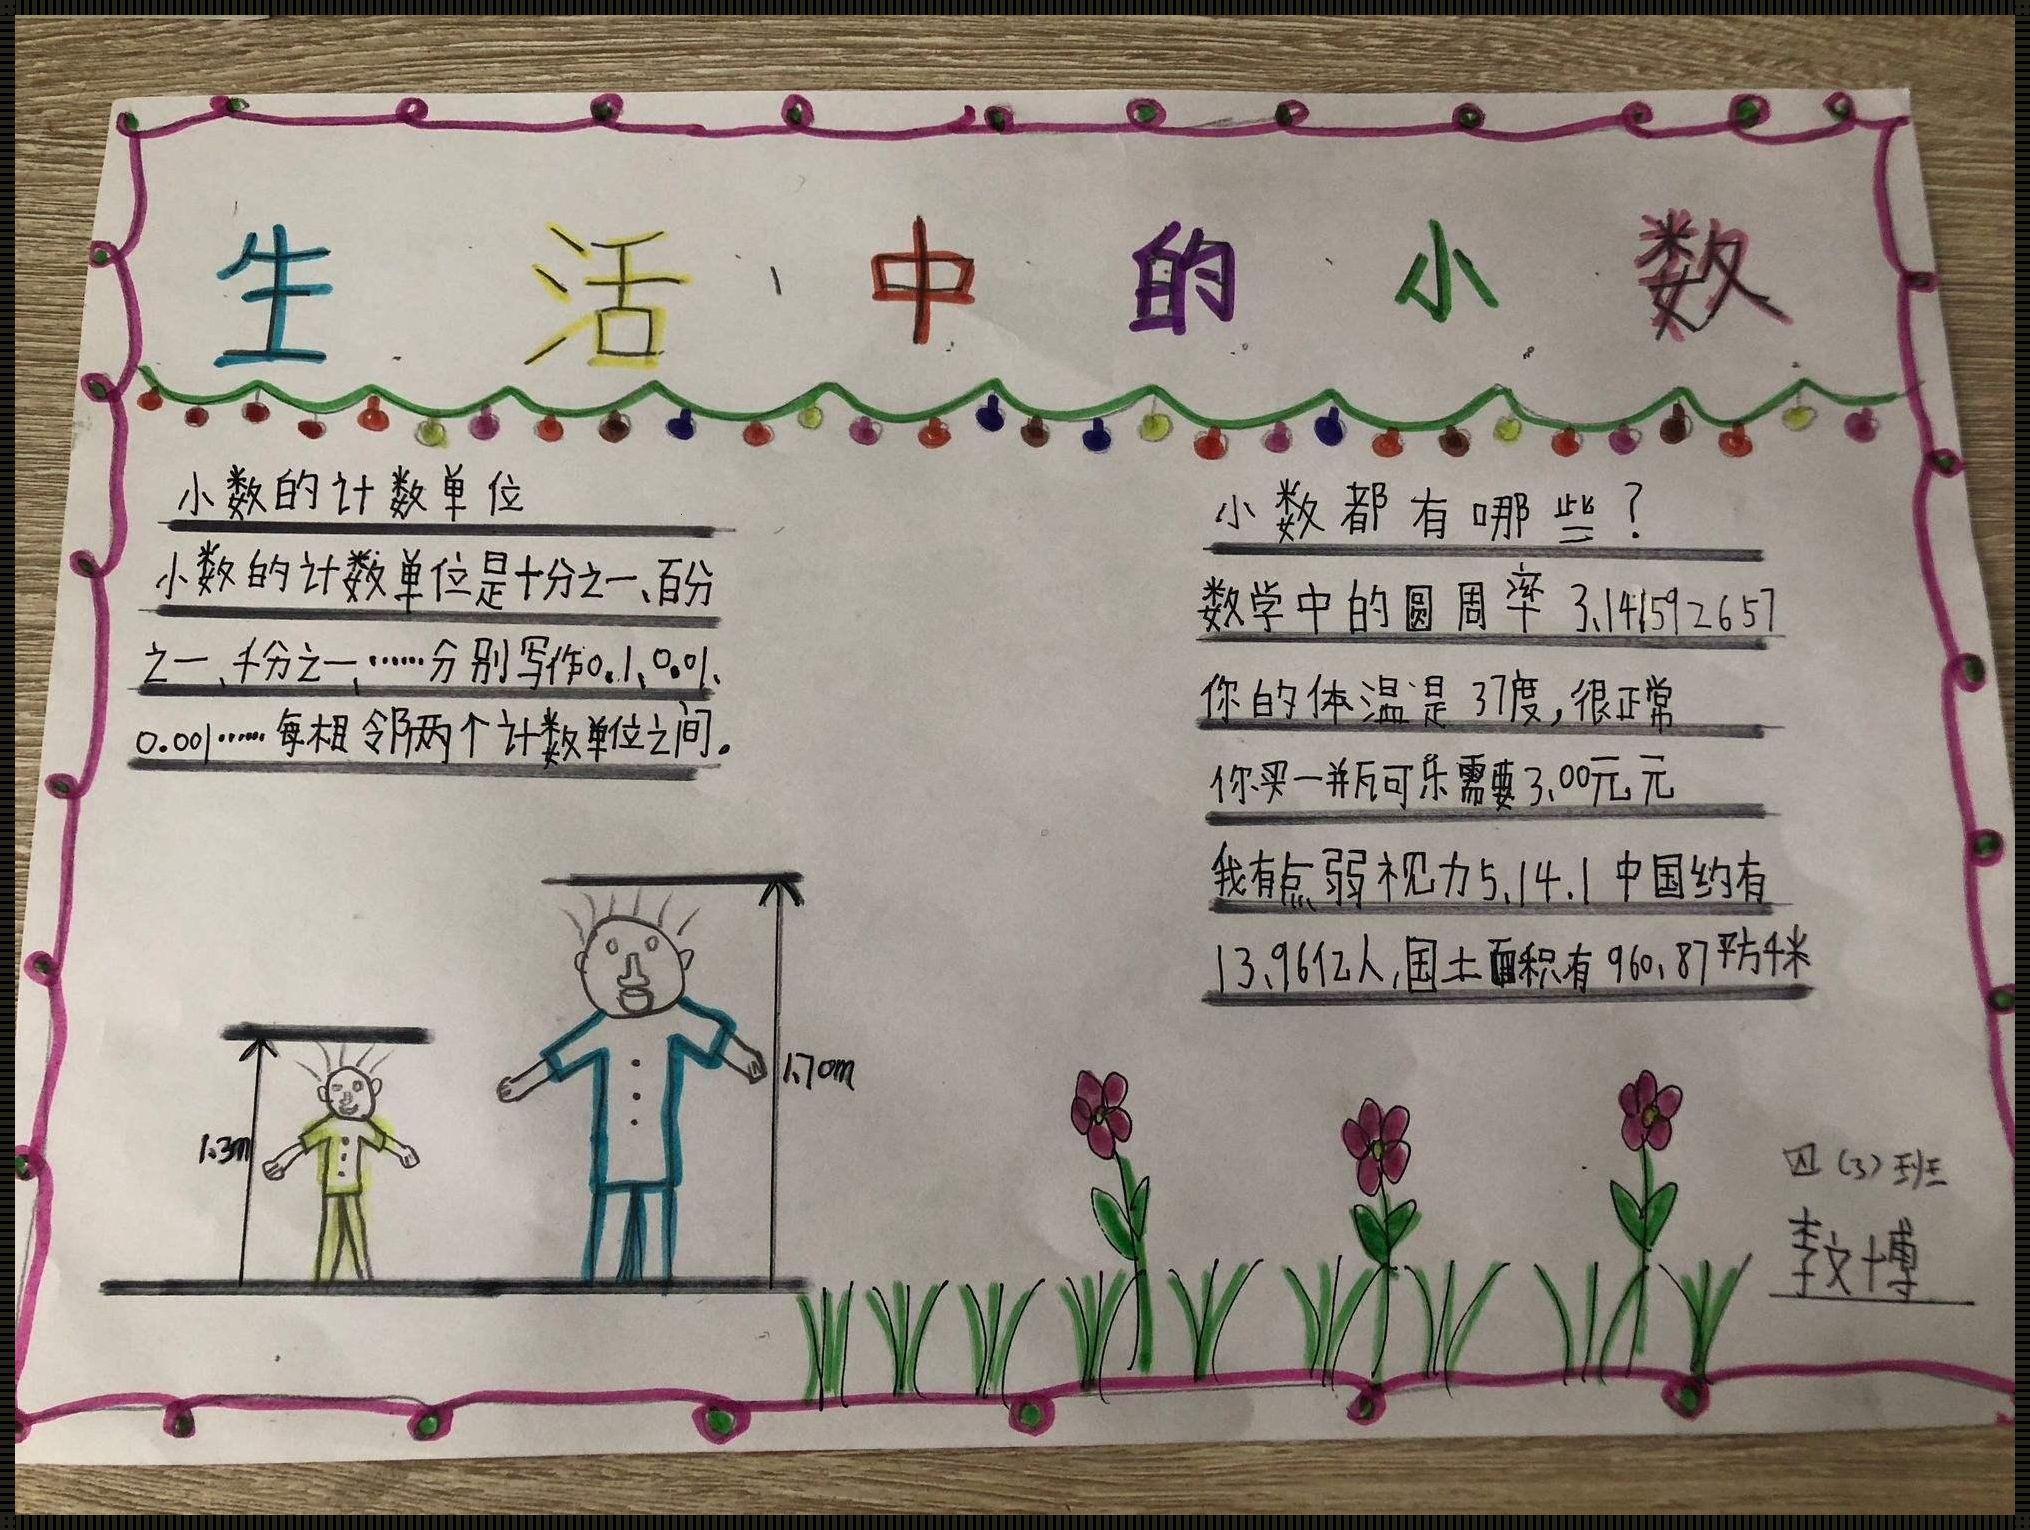 生活中的小数
小数的计数单位
小数的计数单位是十分之一、百分
之一、千分之一、……分别写作0.1、0.01、
0.001……每相邻两个计数单位之间。
小数都有哪些？
数学中的圆周率3.141592657
你的体温是37度,很正常
你买一瓶可乐需要3.00元元
我有点弱视力5.14.1中国约有
13.96亿人,国土面积有960.87平方千米
1.3m
1.70m
四(3)班
李文博